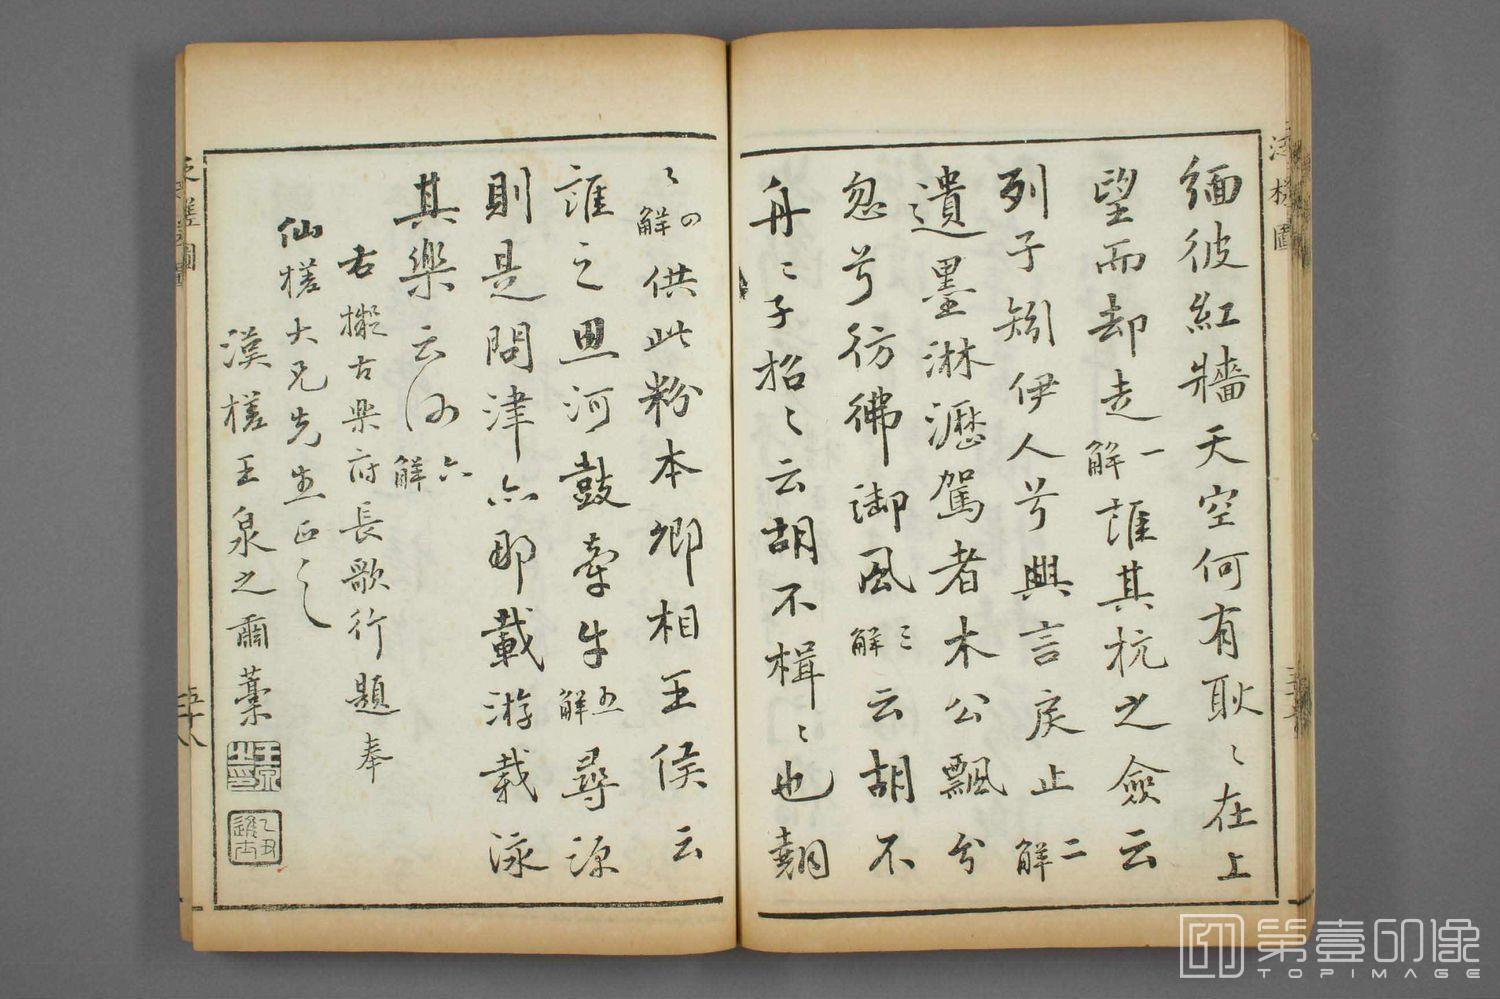 緬彼紅牆天空何有耿〻在上
望而却走一解誰其杭之僉云
列子矧伊人兮興言戾止二解
遺墨淋瀝駕者木公飄兮
忽兮彷彿御風三解云胡不
舟〻子招〻云胡不楫〻也翱
〻四解供此粉本卿相王侯云
誰之思河鼓牽牛五解尋源
則是問津亦那載游載泳
其樂云何六解
右擬古樂府長歌行題奉
仙槎大兄先生正之
漢槎王泉之爾藁
王泉之印
乙丑進士
泛槎圖
五十八
泛槎圖
第壹印像
TOPIMAGE